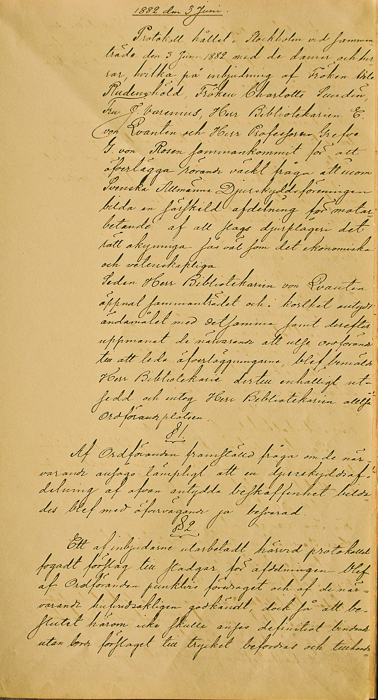 1882 den 3 Juni.
Protokoll hållet i Stockholm vid samman-
träde den 3 Juni 1882 med de damer och her-
rar, hvilka på inbjudning af Fröken
Rudenschöld, Fröken Charlotte Sundin,
Fru J. Varenius, Herr Bibliotekarien E.
von Qvanten och Herr Professoren Grefve
G. von Rosen sammankommit för att
öfverlägga rörande väckt fråga att inom
Svenska Allmänna Djurskyddsföreningen
bilda en särskild afdelning för motar-
betande af all slags djurplågeri det
rått okynniga så väl som det ekonomiska
och vetenskapliga
Sedan Herr Bibliotekarien von Qvanten
öppnat sammanträdet och i korthet antydt
ändamålet med detsamma samt derefter
uppmanat de närvarande att utse ordförande
till att leda öfverläggningarne, blef bemälde
Herr Bibliotekarie dertill enhälligt ut-
sedd och intog Herr Bibliotekarien alltså
Ordförandeplatsen
§ 1
Af Ordföranden framställd fråga om de när-
varande ansågo lämpligt att en Djurskyddsaf-
delning af ofvan antydda beskaffenhet bilda-
des blef med öfvervägande ja besvarad.
§ 2
Ett af inbjudarne utarbetadt härvid protokollet
fogadt förslag till stadgar för afdelningen blef
af Ordföranden punktvis föredraget och af de när-
varande hufvudsakligen godkändt, dock så att be-
slutet härom icke skulle anses definitivt bindande
utan borde förslaget till trycket befordras och